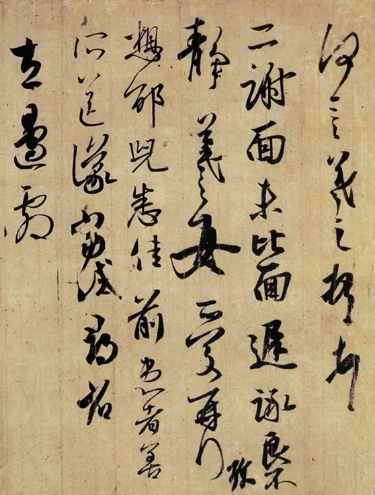 何言羲之頓首
二謝面未比面遲詠良不
静羲之女愛再拜
珍
想邵兒悉佳前患者善
所送議當試尋省
左邊劇